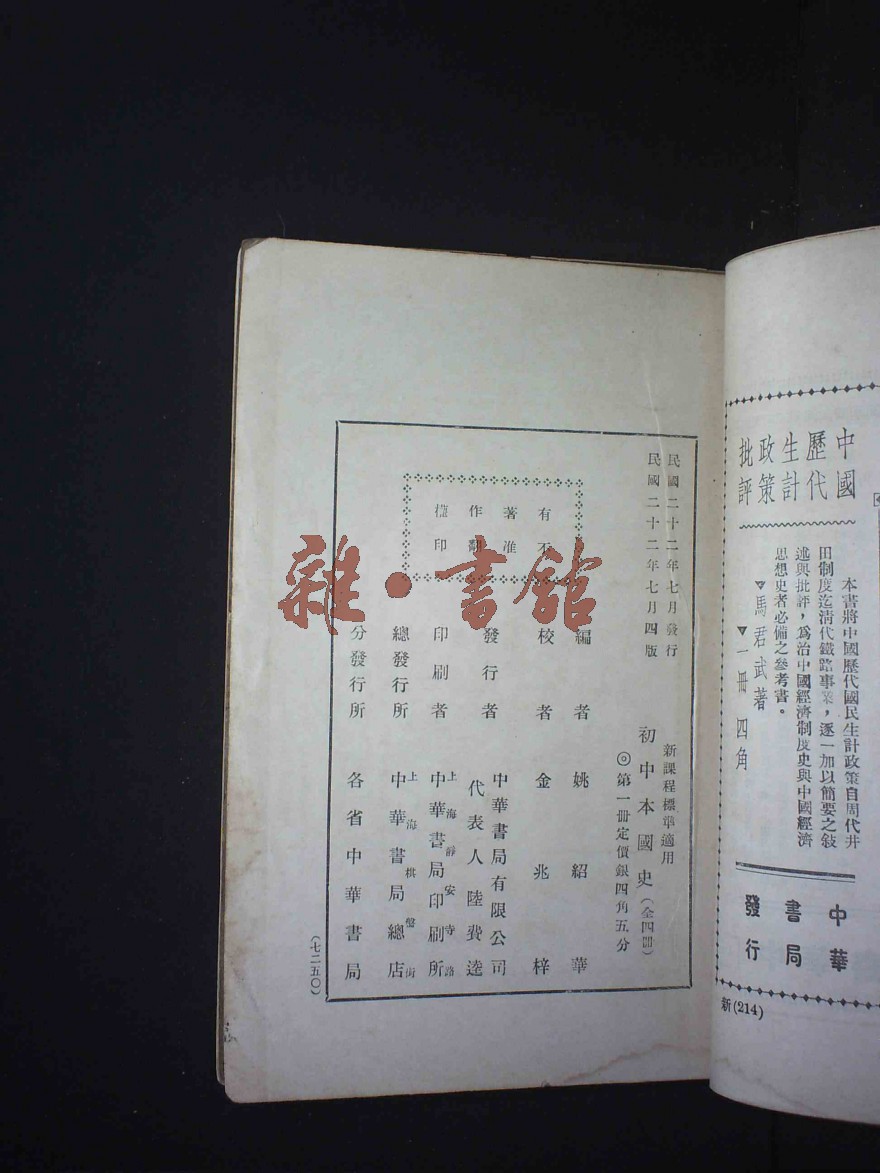 中國歷代生計政策批評
本書將中國歷代國民生計政策自周代井
田制度迄清代鐵路事業，逐一加以簡要之敍
述與批評，爲治中國經濟制度史與中國經濟
思想史者必備之參考書。
▼馬君武著
▼一冊 四角
中華書局發行
新(214)
民國二十二年七月發行
民國二十二年七月四版
新課程標準適用
初中本國史（全四冊）
◎第一冊定價銀四角五分
有著作權
不准翻印
編者 姚紹華
校者 金兆梓
發行者 中華書局有限公司
代表人陸費逵
印刷者 上海靜安寺路
中華書局印刷所
總發行所 上海棋盤街
中華書局總店
分發行所 各省中華書局
（七二五〇）
雜·書館